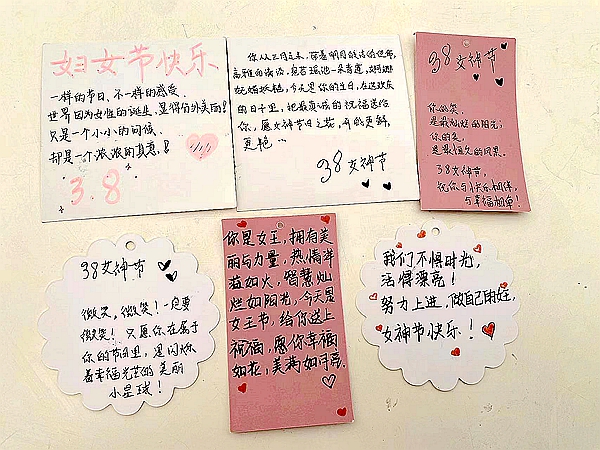 妇女节快乐
一样的节日、不一样的感受
世界因为女性的诞生，显得分外美丽！
只是一个小小的问候，
却是一个浓浓的真意！
3.8
你从三月走来，
高雅的
今天是你的生日，在这欢乐
的日子里，把最真诚的祝福送给
你，愿女神节日之花，开的更鲜，
更艳…
38女神节
38女神节
你的笑，
是最灿烂的阳光；
你的美，
是最恒久的风景。
38女神节，
祝你与快乐相伴，
与幸福相拥！
38女神节
微笑，微笑！一定要
微笑！只愿你在属于
你的节日里，是闪烁
着幸福光芒的美丽
小星球！
你是女王，拥有美
丽与力量，热情洋
溢如火，智慧灿
烂如阳光，今天是
女王节，给你送上
祝福，愿你幸福
如花，美满如月亮。
我们不惧时光，
活得漂亮！
努力上进，做自己的女王，
女神节快乐！